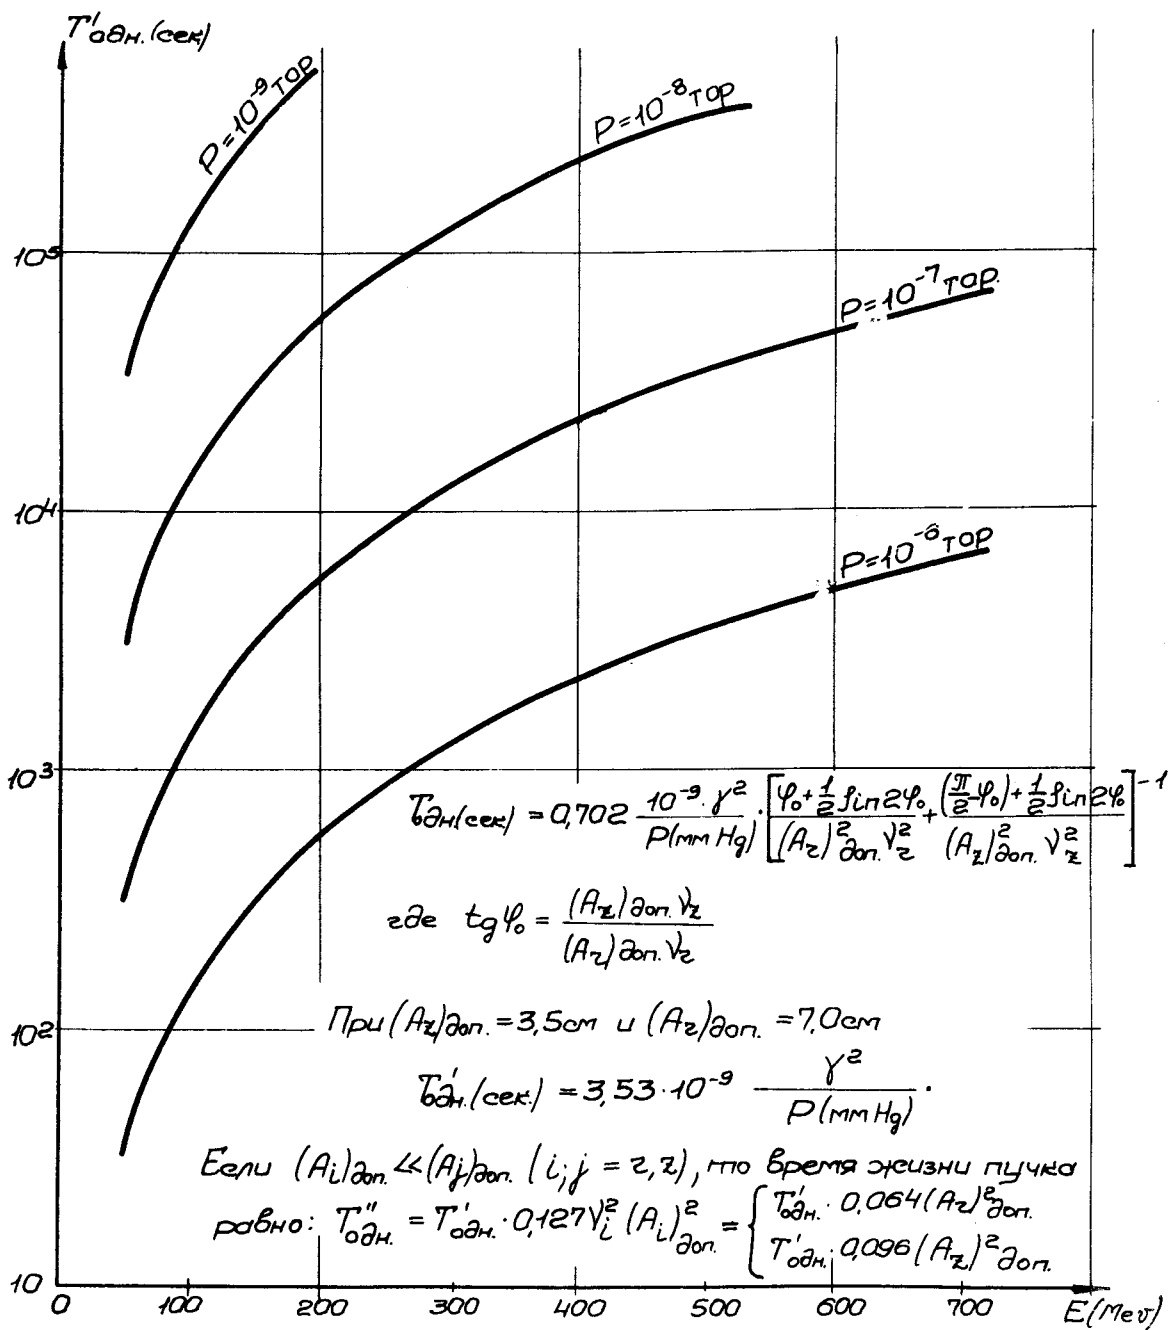 T'одн. (сек)
P=10⁻⁹ тор
P=10⁻⁸ тор
10⁵
P=10⁻⁷ тор.
10⁴
P=10⁻⁶ тор
10³
τодн(сек) = 0,702 10⁻⁹·γ² / P(мм Hg) · [ (φ₀ + 1/2 sin 2φ₀) / ((Aг)²доп. νг²) + ((π/2 - φ₀) + 1/2 sin 2φ₀) / ((Az)²доп. νz²) ]⁻¹
где tg φ₀ = (Az)доп. νz / (Aг)доп. νг
10²
При (Az)доп. = 3,5см и (Aг)доп. = 7,0см
τ'одн.(сек.) = 3,53·10⁻⁹ γ² / P(мм Hg) .
Если (Ai)доп. ≪ (Aj)доп. (i; j = г, z), то время жизни пучка
равно: T''одн. = T'одн. · 0,127 νi² (Ai)²доп. = { T'одн. · 0,064 (Aг)²доп.
T'одн. · 0,096 (Az)² доп.
10
0 100 200 300 400 500 600 700 E (Mev)